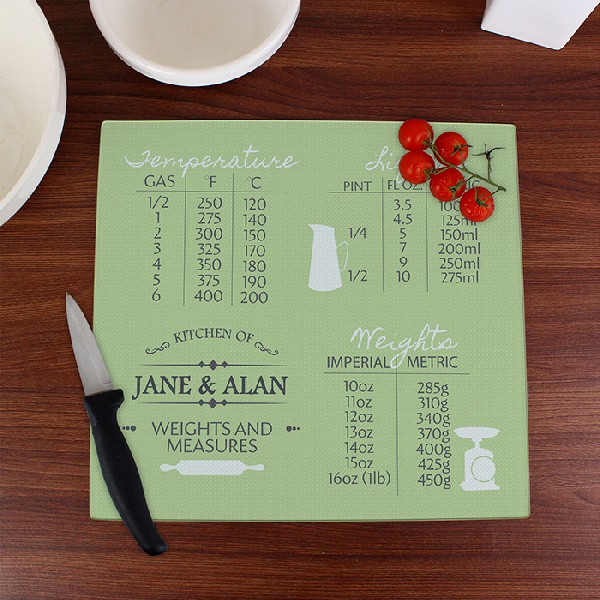 Temperature
GAS °F °C
1/2 250 120
1 275 140
2 300 150
3 325 170
4 350 180
5 375 190
6 400 200
PINT FLOZ
3.5
4.5 125ml
1/4 5 150ml
7 200ml
9 250ml
1/2 10 275ml
KITCHEN OF
JANE & ALAN
WEIGHTS AND
MEASURES
Weights
IMPERIAL METRIC
10oz 285g
11oz 310g
12oz 340g
13oz 370g
14oz 400g
15oz 425g
16oz (1lb) 450g